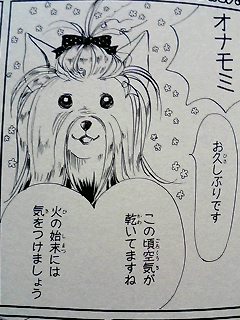 オナモミ
お久しぶりです
この頃空気が
乾いてますね
火の始末には
気をつけましょう